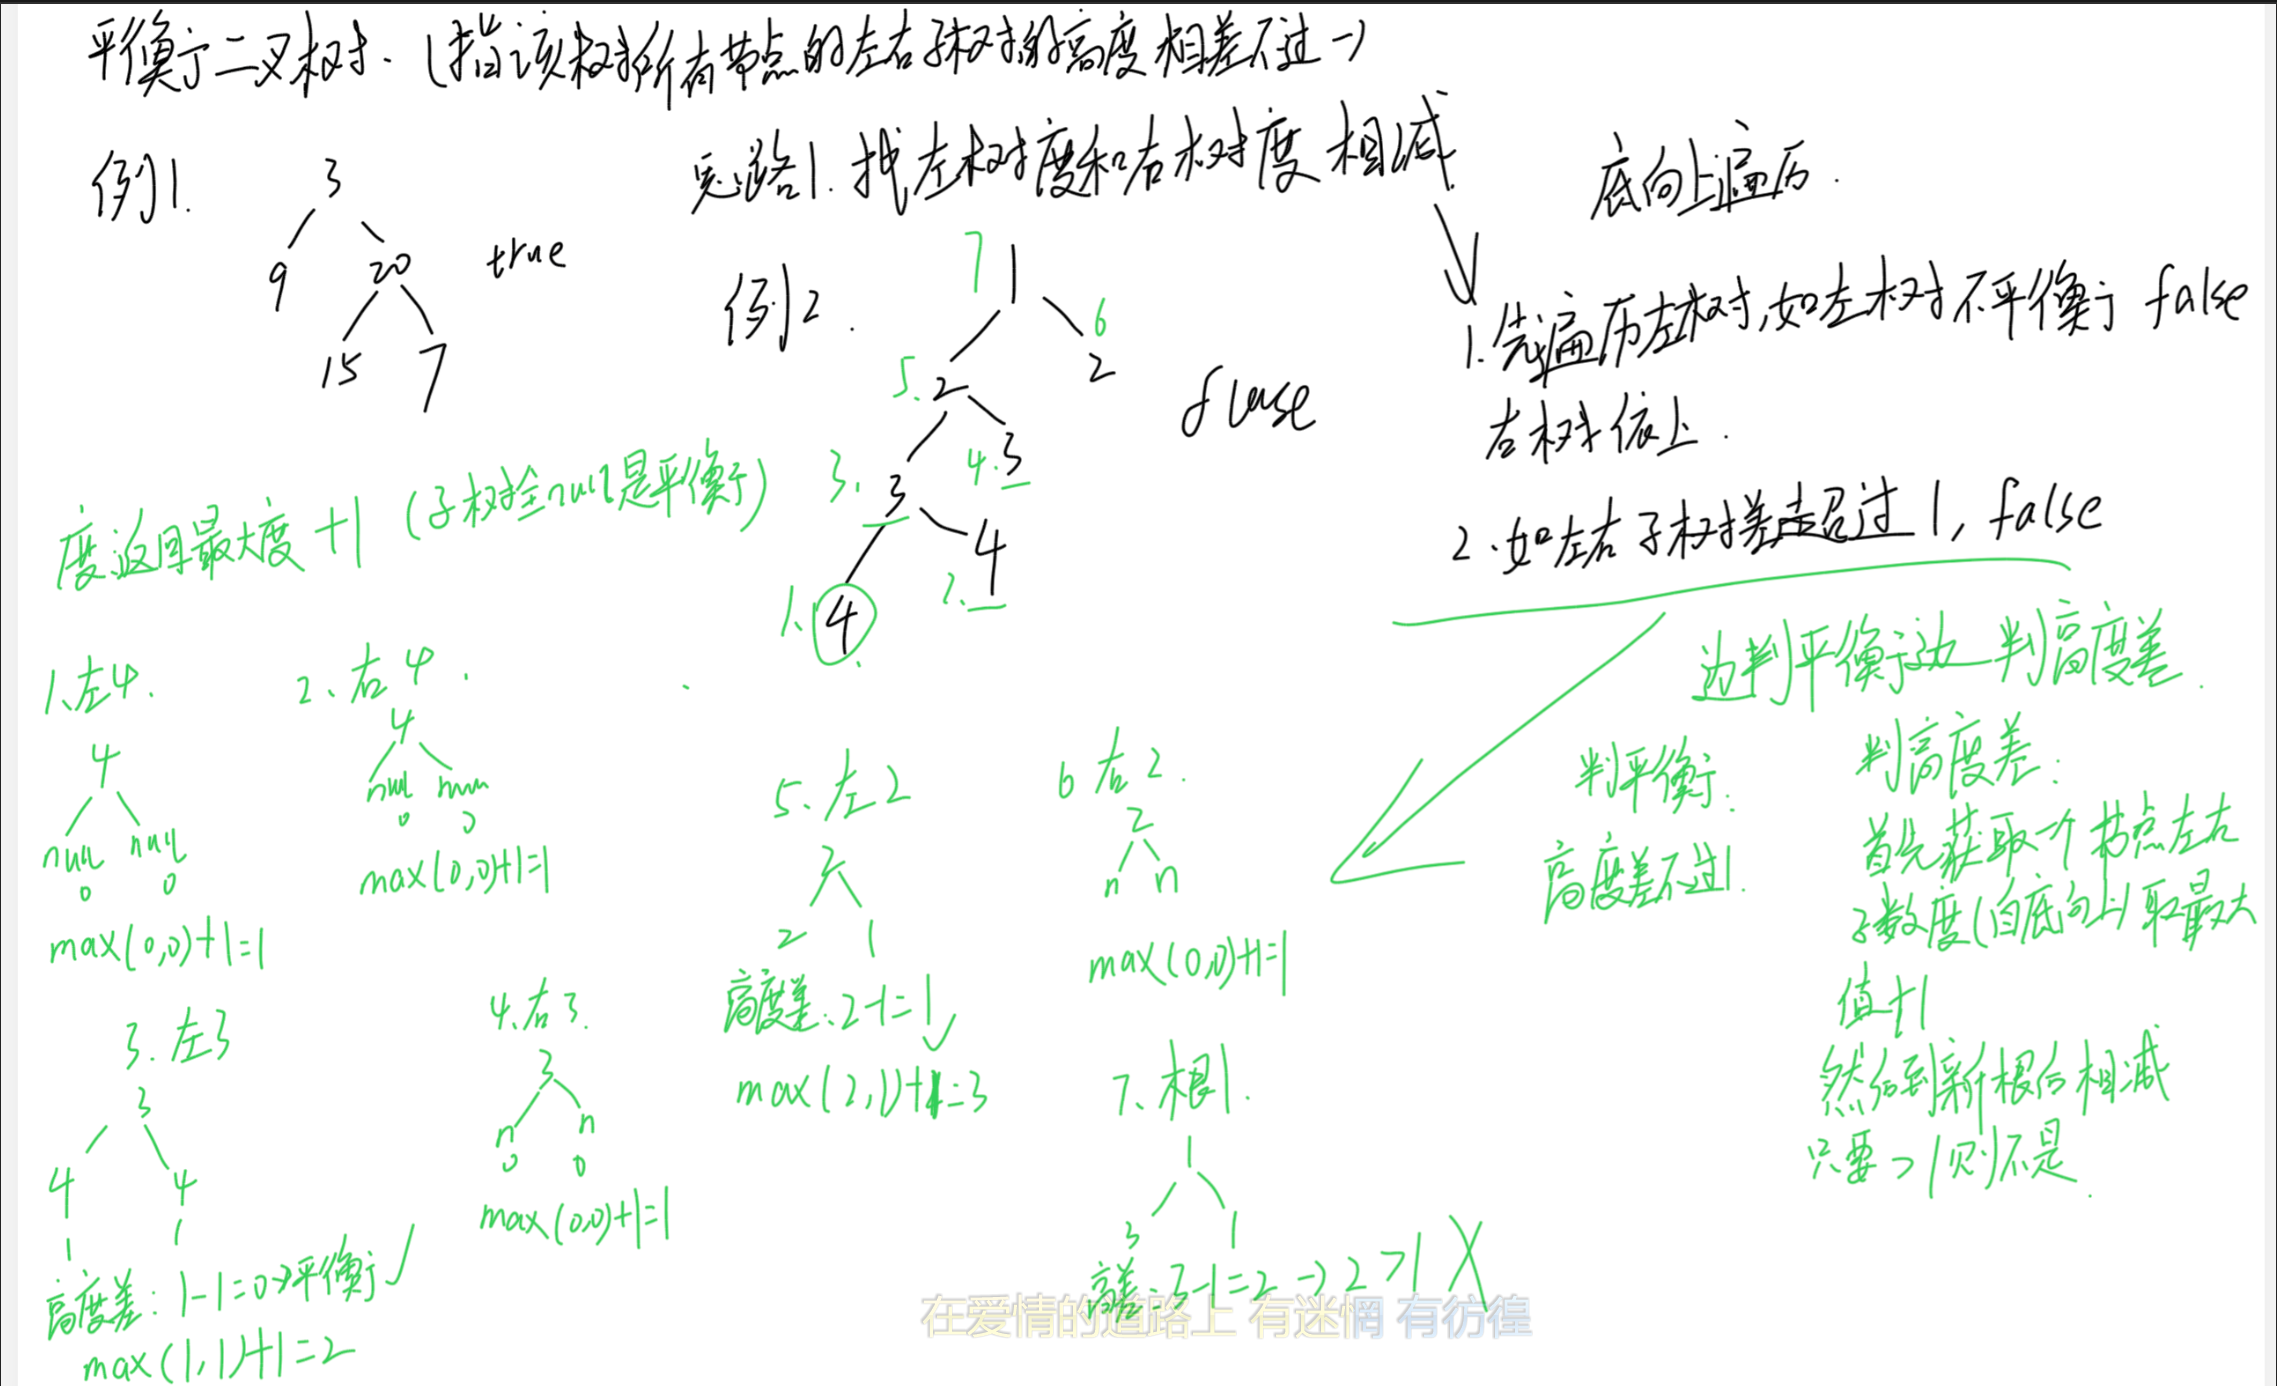 平衡二叉树. (指该树所有节点的左右子树的高度相差不过一)
例1.
3
9 20
15 7
true
思路1. 找左树度和右树度 相减
底向上遍历.
1. 先遍历左树,如左树不平衡 false
右树依上.
2. 如左右子树差超过1, false
例2.
7 1
5. 2 6 2
3. 3 4. 3
1. 4 2. 4
fluse
度返回最大度+1 (子树全null是平衡)
边判平衡边判高度差.
判平衡:
高度差不过1.
判高度差:
首先获取一个节点左右
子数度(自底向上)取最大
值+1
然后到新根后相减
只要>1则不是.
1、左4.
4
null null
0 0
max(0,0)+1=1
2、右4.
4
null
0 0
max(0,0)+1=1
3. 左3
3
4 4
1 1
高度差: 1-1=0→平衡✓
max(1,1)+1=2
4、右3.
3
n n
0 0
max(0,0)+1=1
5、左2
2
2 1
高度差、2-1=1 ✓
max(2,1)+1=3
6 右2.
2
n n
max(0,0)+1=1
7、根1.
1
3 1
高差:3-1=2→2>1 X
在爱情的道路上 有迷惘 有彷徨